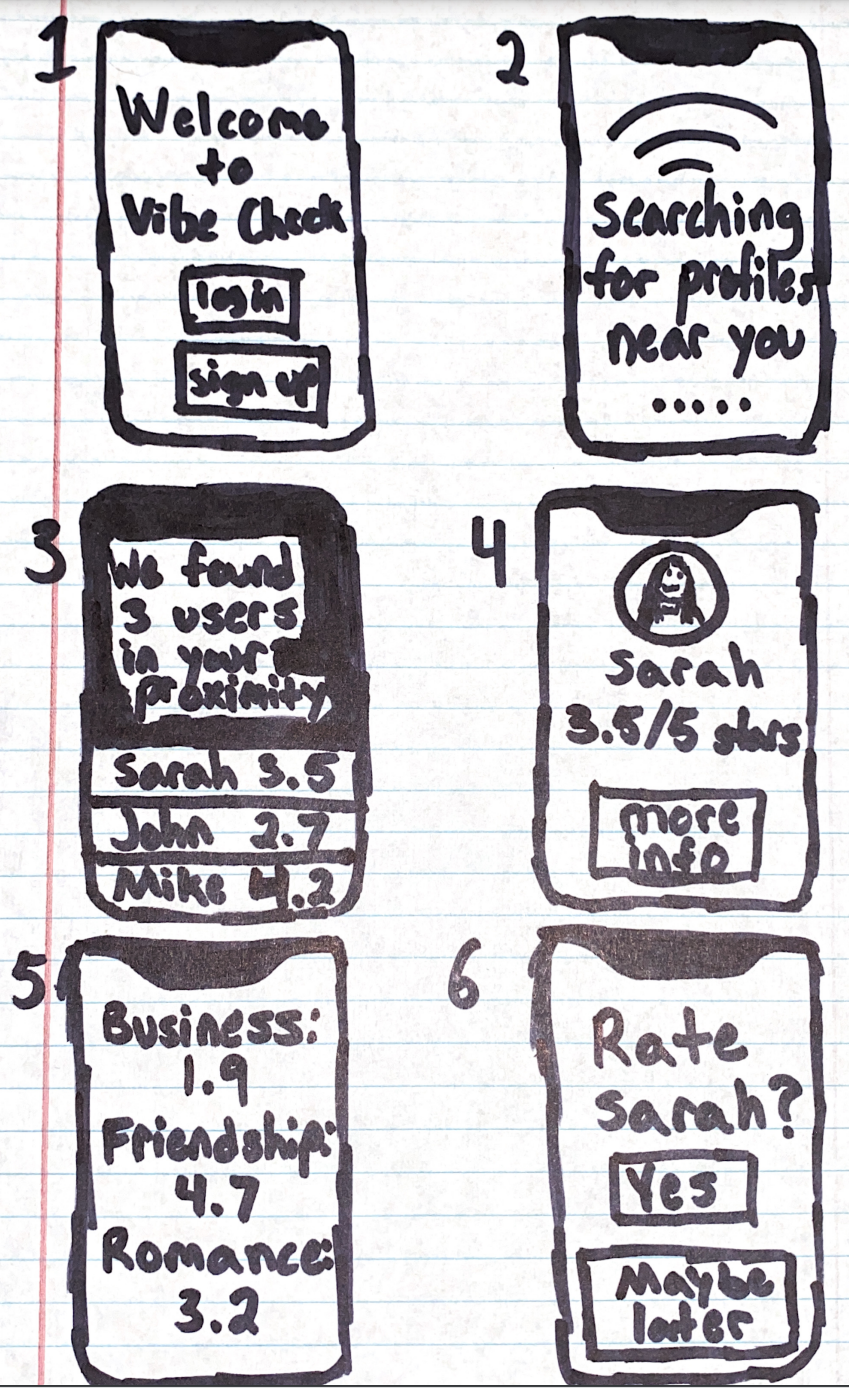 1
Welcome
to
Vibe Check
login
sign up
2
Searching
for profiles
near you
.....
3
We found
3 users
in your
proximity
Sarah 3.5
John 2.7
Mike 4.2
4
Sarah
3.5/5 stars
more
info
5
Business:
1.9
Friendship:
4.7
Romance:
3.2
6
Rate
Sarah?
Yes
Maybe
later